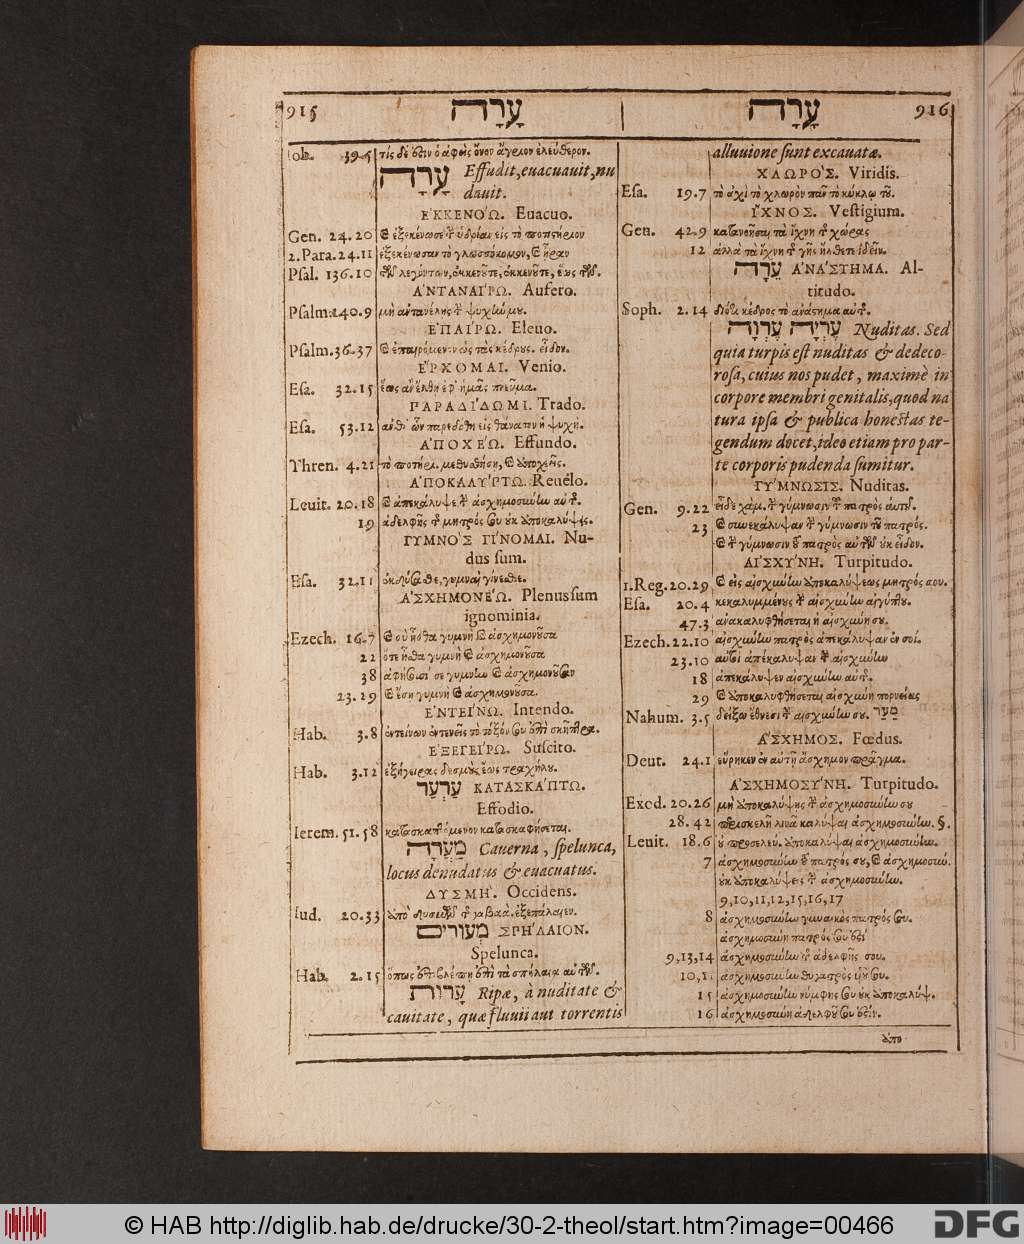 915 עָרָה
Iob. 39.5 τίς δέ ἐστιν ὁ ἀφεὶς ὄνον ἄγριον ἐλεύθερον.
עָרָה Effudit, euacuauit, nu
dauit.
ἘΚΚΕΝΟΏ. Euacuo.
Gen. 24.20 καὶ ἐξεκένωσε τὴν ὑδρίαν εἰς τὸ ποτιστήριον
2. Para. 24.11 ἐξεκένωσαν τὸ γλωσσόκομον, καὶ ἦραν
Psal. 136.10 τῶν λεγόντων, ἐκκενοῦτε, ἐκκενοῦτε, ἕως τῶν.
ἈΝΤΑΝΑΙΡΩ. Aufero.
Psalm. 140.9 μὴ ἀντανέλῃς τὴν ψυχήν μου.
ἘΠΑΙΡΩ. Eleuo.
Psalm. 36.37 καὶ ἐπαιρόμενον ὡς τὰς κέδρους. εἶδον.
ἘΡΧΟΜΑΙ. Venio.
Esa. 32.15 ἕως ἂν ἔλθῃ ἐφ' ἡμᾶς πνεῦμα.
ΠΑΡΑΔΙΔΩΜΙ. Trado.
Esa. 53.12 ἀνθ' ὧν παρεδόθη εἰς θάνατον ἡ ψυχὴ.
ἈΠΟΧΕΏ. Effundo.
Thren. 4.21 τὸ ποτήρι. μεθυσθήσῃ, καὶ ἀποχεεῖς.
ἈΠΟΚΑΛΥΠΤΩ. Reuélo.
Leuit. 20.18 καὶ ἀπεκάλυψε τὴν ἀσχημοσύνην αὐτῆς.
19 ἀδελφῆς τῆς μητρός σου οὐκ ἀποκαλύψεις.
ΓΥΜΝΟΣ ΓΙΝΟΜΑΙ. Nu-
dus sum.
Esa. 32.11 ἐκδύσασθε, γυμναὶ γίνεσθε.
ἈΣΧΗΜΟΝΕΏ. Plenus sum
ignominia.
Ezech. 16.7 καὶ σὺ ἦσθα γυμνὴ καὶ ἀσχημονοῦσα
22 ὅτε ἦσθα γυμνὴ καὶ ἀσχημονοῦσα
38 ἀφήσουσί σε γυμνὴν καὶ ἀσχημονοῦσαν
23.29 καὶ ἔσῃ γυμνὴ καὶ ἀσχημονοῦσα.
ἘΝΤΕΙΝΩ. Intendo.
Hab. 3.8 ἐντείνων ἐντενεῖς τὸ τόξον σου ἐπὶ σκῆπτρα.
ἘΞΕΓΕΙΡΩ. Suscito.
Hab. 3.12 ἐξήγειρας δεσμοὺς ἕως τραχήλου.
עַרְעֵר ΚΑΤΑΣΚΑΠΤΩ.
Effodio.
Ierem. 51.58 κατασκαπτόμενον κατασκαφήσεται.
מְעָרָה Cauerna, spelunca,
locus denudatus & euacuatus.
ΔΥΣΜΗ. Occidens.
Iud. 20.33 ἀπὸ δυσμῶν τῆς γαβαά. ἐξεπάλαιεν.
מְעוּרִים ΣΠΗΛΑΙΟΝ.
Spelunca.
Hab. 2.15 ὅπως ἐπιβλέπῃ ἐπὶ τὰ σπήλαια αὐτῶν.
עָרוֹת Ripæ, à nuditate &
cauitate, quæ fluuii aut torrentis
עָרָה 916
alluuione sunt excauatæ.
ΧΛΩΡΟΣ. Viridis.
Esa. 19.7 τὸ ἀχὶ τὸ χλωρὸν πᾶν τὸ κύκλῳ τοῦ.
ἼΧΝΟΣ. Vestigium.
Gen. 42.9 κατανοῆσαι τὰ ἴχνη τῆς χώρας
12 ἀλλὰ τὰ ἴχνη τῆς γῆς ἤλθετε ἰδεῖν.
עֵרָה ἈΝΑΣΤΗΜΑ. Al-
titudo.
Soph. 2.14 διότι κέδρος τὸ ἀνάστημα αὐτῆς.
עֶרְיָה עֶרְוָה Nuditas. Sed
quia turpis est nuditas & dedeco-
rosa, cuius nos pudet, maximè in
corpore membri genitalis, quod na
tura ipsa & publica honestas te-
gendum docet, ideo etiam pro par-
te corporis pudenda sumitur.
ΓΥΜΝΩΣΙΣ. Nuditas.
Gen. 9.22 εἶδε χὰμ. τὴν γύμνωσιν τοῦ πατρὸς αὐτοῦ.
23 καὶ συνεκάλυψαν τὴν γύμνωσιν τοῦ πατρός.
καὶ τὴν γύμνωσιν τοῦ πατρὸς αὐτῶν οὐκ εἶδον.
ΑἸΣΧΥΝΗ. Turpitudo.
1. Reg. 20.29 καὶ εἰς αἰσχύνην ἀποκαλύψεως μητρός σου.
Esa. 20.4 κεκαλυμμένους τὴν αἰσχύνην αἰγύπτου.
47.3 ἀνακαλυφθήσεται ἡ αἰσχύνη σου.
Ezech. 22.10 αἰσχύνην πατρὸς ἀπεκάλυψαν ἐν σοί.
23.10 αὐτοὶ ἀπεκάλυψαν τὴν αἰσχύνην
18 ἀπεκάλυψεν αἰσχύνην αὐτῆς.
29 καὶ ἀποκαλυφθήσεται αἰσχύνη πορνείας
Nahum. 3.5 δείξω ἔθνεσι τὴν αἰσχύνην σου. מַעַר
ἌΣΧΗΜΟΣ. Fœdus.
Deut. 24.1 εὕρηκεν ἐν αὐτῇ ἄσχημον πρᾶγμα.
ἈΣΧΗΜΟΣΥΝΗ. Turpitudo.
Exod. 20.26 μὴ ἀποκαλύψῃς τὴν ἀσχημοσύνην σου
28.42 περισκελῆ λινᾶ καλύψαι ἀσχημοσύνην. §.
Leuit. 18.6 οὐ προσελεύ. ἀποκαλύψαι ἀσχημοσύνην.
7 ἀσχημοσύνην τοῦ πατρός σου, καὶ ἀσχημοσύ.
οὐκ ἀποκαλύψεις τὴν ἀσχημοσύνην.
9,10,11,12,15,16,17
8 ἀσχημοσύνην γυναικὸς πατρός σου.
ἀσχημοσύνη πατρός σου ἐστί
9,13,14 ἀσχημοσύνην τῆς ἀδελφῆς σου.
10,1 ἀσχημοσύνην θυγατρὸς υἱοῦ σου.
15 ἀσχημοσύνην νύμφης σου οὐκ ἀποκαλύψ.
16 ἀσχημοσύνη ἀδελφοῦ σου ἐστίν.
ἀπο
© HAB http://diglib.hab.de/drucke/30-2-theol/start.htm?image=00466
DFG